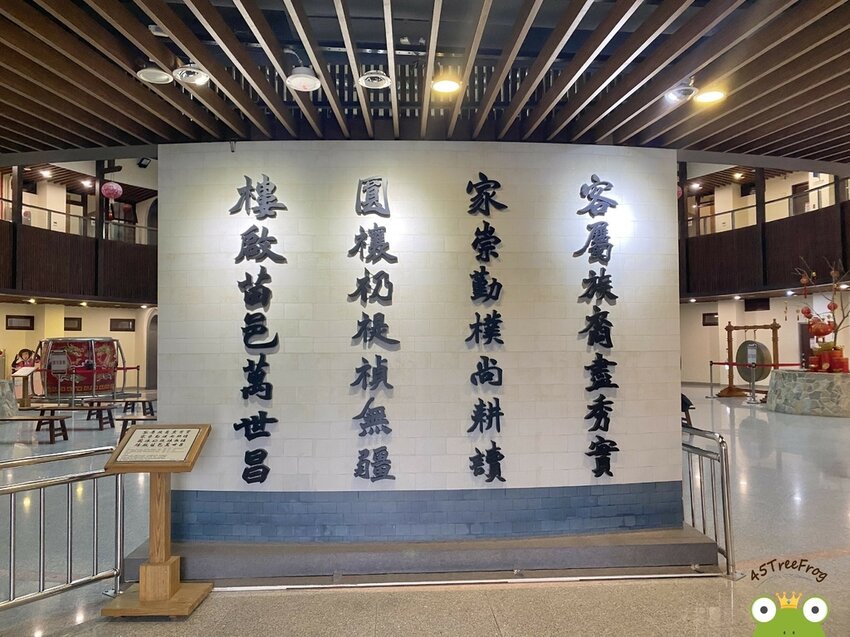 客屬族裔盡秀實
家崇勤樸尚耕讀
圓樓初禔禎無疆
樓啟苗邑萬世昌
45TreeFrog